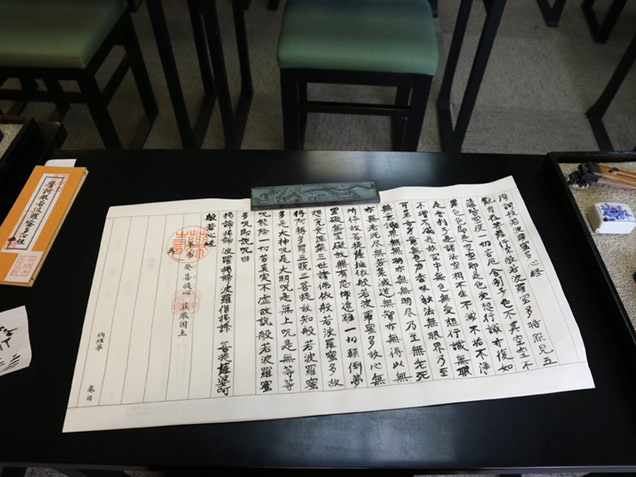 摩訶般若波羅蜜多心経
観自在菩薩行深般若波羅蜜多時照見五
蘊皆空度一切苦厄舎利子色不異空空不
異色色即是空空即是色受想行識亦復如
是舎利子是諸法空相不生不滅不垢不浄
不増不減是故空中無色無受想行識無眼
耳鼻舌身意無色声香味触法無眼界乃至
無意識界無無明亦無無明尽乃至無老死
亦無老死尽無苦集滅道無智亦無得以無
所得故菩提薩埵依般若波羅蜜多故心無
罣礙無罣礙故無有恐怖遠離一切顛倒夢
想究竟涅槃三世諸仏依般若波羅蜜多故
得阿耨多羅三藐三菩提故知般若波羅蜜
多是大神呪是大明呪是無上呪是無等等
呪能除一切苦真実不虚故説般若波羅蜜
多呪即説呪曰
羯諦羯諦波羅羯諦波羅僧羯諦 菩提薩婆訶
般若心経
發菩提心 莊厳国土
摩訶般若波羅蜜多心経